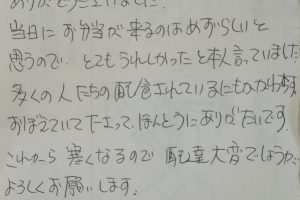 ありがとうございました.
当日に お弁当が 来るのは めずらしいと
思うので とてもうれしかったと 本人 言っていました
多くの人たちの配食されているにもかかわらず
おぼえていて 下さって、ほんとうにありがたいです。
これから 寒くなるので 配達 大変でしょうが、
よろしくお願いします。